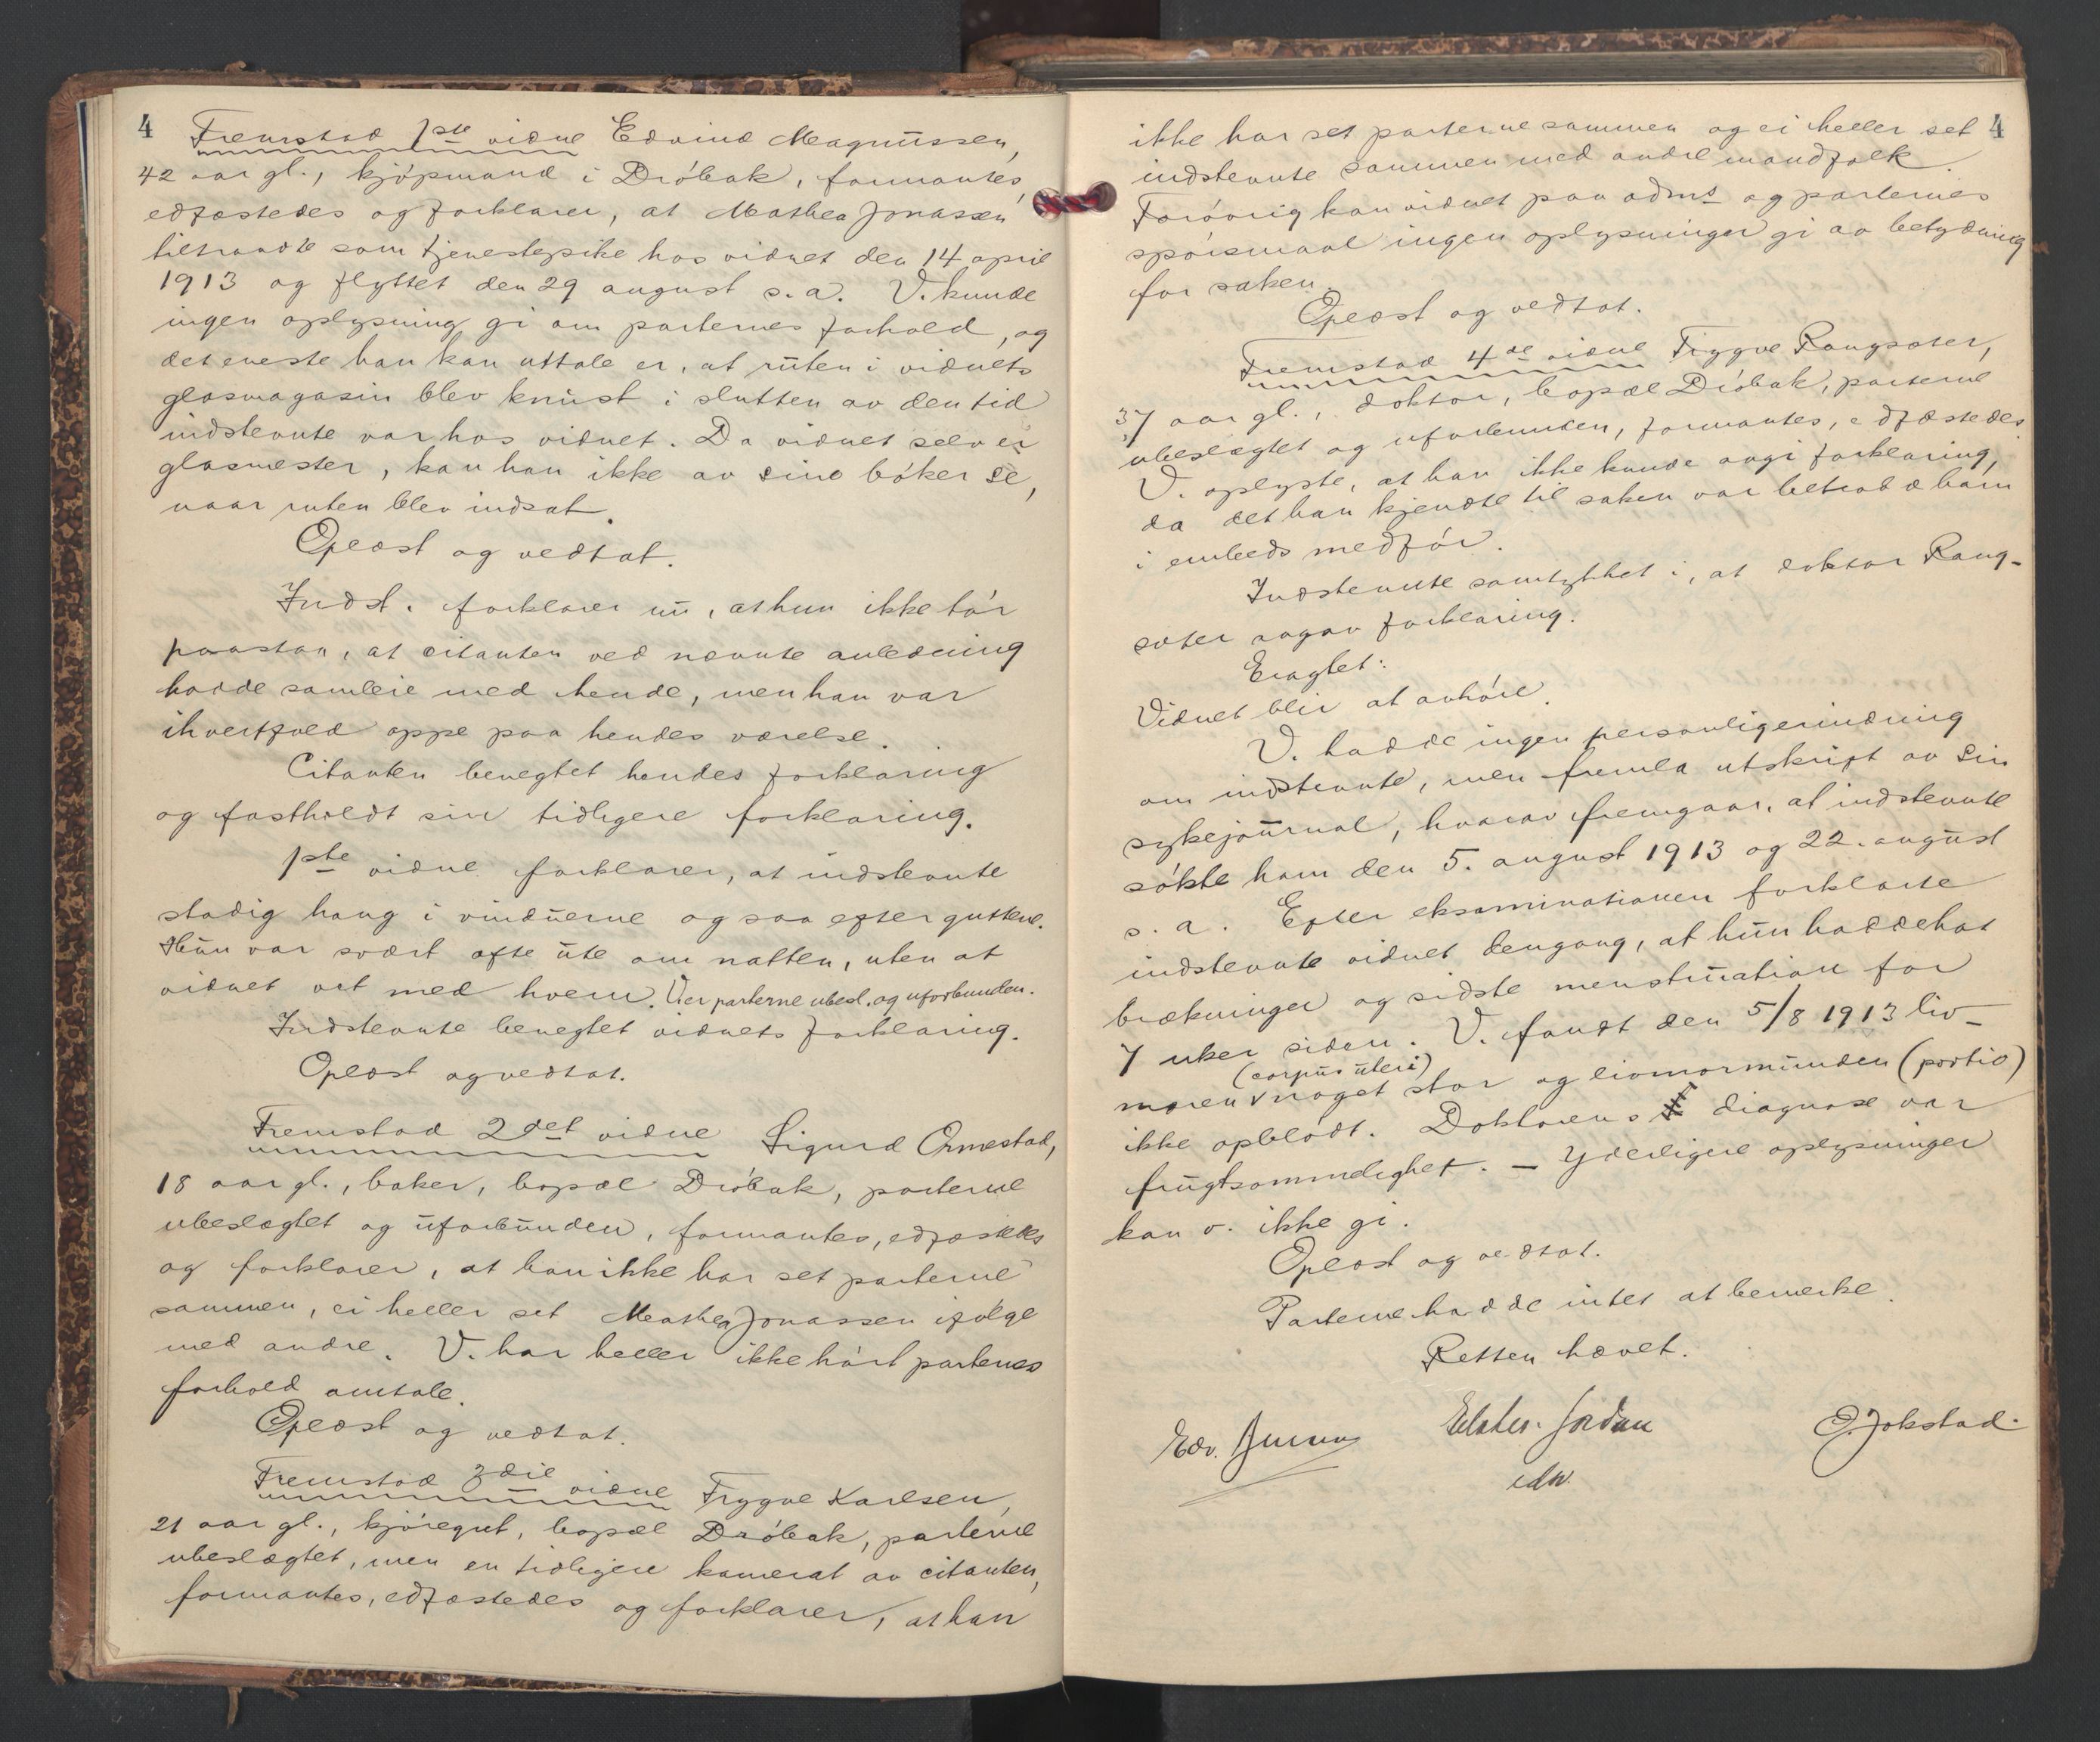 4
Fremstod 1ste vidne Edvind Magnussen,
42 aar gl., kjøpmand i Drøbak, formantes,
edfæstedes og forklarer, at Mathea Jonassen
tiltraadte som tjenestepike hos vidnet den 14 april
1913 og flyttet den 29 august s. a. V. kunde
ingen oplysning gi om parternes forhold, og
det eneste han kan uttale er, at ruten i vidnets
glasmagasin blev knust i slutten av den tid
indstevnte var hos vidnet. Da vidnet selv er
glasmester, kan han ikke av sine bøker se,
naar ruten blev indsat.
Oplæst og vedtat.
Indst. forklarer nu, at hun ikke tør
paastaa, at citanten ved nævnte anledning
hadde samleie med hende, men han var
ihvertfald oppe paa hendes værelse.
Citanten benegtet hendes forklaring
og fastholdt sin tidligere forklaring.
1ste vidne forklarer, at indstevnte
stadig hang i vinduerne og saa efter guttene.
Hun var svært ofte ute om natten, uten at
vidnet vet med hvem. Er parterne ubesl. og uforbunden.
Indstevnte benegtet vidnets forklaring.
Oplæst og vedtat.
Fremstod 2det vidne Sigurd Ormestad,
18 aar gl., baker, bopæl Drøbak, parterne
ubeslægtet og uforbunden, formantes, edfæstedes
og forklarer, at han ikke har set parterne
sammen, ei heller set Mathea Jonassen ifølge
med andre. V. har heller ikke hørt parternes
forhold omtale.
Oplæst og vedtat.
Fremstod 3die vidne Trygve Karlsen,
21 aar gl., kjøregut, bopæl Drøbak, parterne
ubeslægtet, men en tidligere kamerat av citanten,
formantes, edfæstedes og forklarer, at han
4
ikke har set parterne sammen og ei heller set
indstevnte sammen med andre mandfolk.
Forøvrig kan vidnet paa adms og parternes
spørsmaal ingen oplysninger gi av betydning
for saken.
Oplæst og vedtat.
Fremstod 4de vidne Trygve Rangsæter,
37 aar gl., doktor, bopæl Drøbak, parterne
ubeslægtet og uforbunden, formantes, edfæstedes.
V. oplyste, at han ikke kunde avgi forklaring,
da det han kjendte til saken var betrod ham
i embeds medfør.
Indstevnte samtykket i, at doktor Rang-
sæter avgav forklaring.
Eragtet:
Vidnet blir at avhøre.
V. hadde ingen personlig erindring
om indstevnte, men fremla utskript av sin
sykejournal, hvorav fremgaar, at indstevnte
søkte ham den 5. august 1913 og 22. august
s. a. Efter eksaminationen forklarte
indstevnte vidnet dengang, at hun hadde hat
brækninger og sidste menstruation for
7 uker siden. V. fandt den 5/8 1913 liv-
(corpus uteri)
moren noget stor og livmormunden (portio)
ikke opblødt. Doktorens diagnose var
frugtsommelighet. - Yderligere oplysninger
kan v. ikke gi.
Oplæst og vedtat.
Parterne hadde intet at bemerke.
Retten hævet.
Edv. Jordan O. Jokstad.